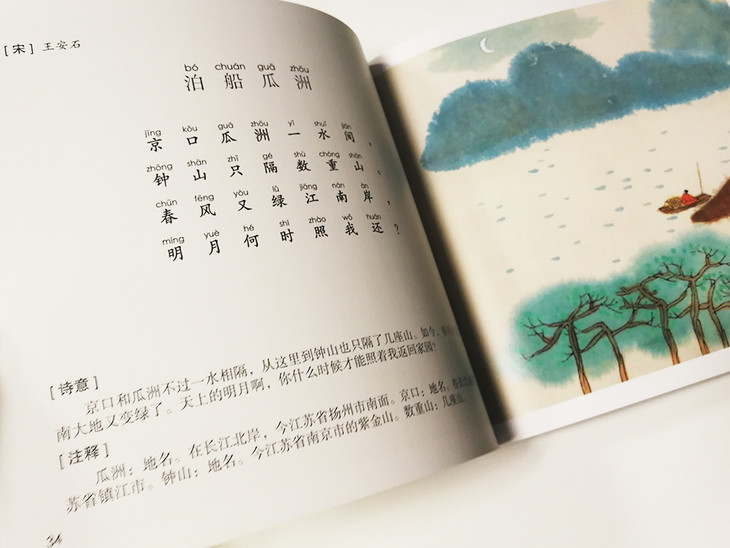 [宋] 王安石
bó chuán guā zhōu
泊船瓜洲
jīng kǒu guā zhōu yī shuǐ jiān
京口瓜洲一水间，
zhōng shān zhǐ gé shù chóng shān
钟山只隔数重山。
chūn fēng yòu lǜ jiāng nán àn
春风又绿江南岸，
míng yuè hé shí zhào wǒ huán
明月何时照我还？
[诗意]
京口和瓜洲不过一水相隔，从这里到钟山也只隔了几座山。如今，
南大地又变绿了。天上的明月啊，你什么时候才能照着我返回家园？
[注释]
瓜洲：地名。在长江北岸，今江苏省扬州市南面。京口：地名。
苏省镇江市。钟山：地名。今江苏省南京市的紫金山。数重山：几座山。
34